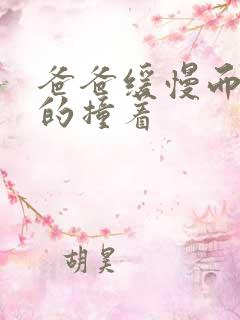 爸爸缓慢而
的撞着
胡昊